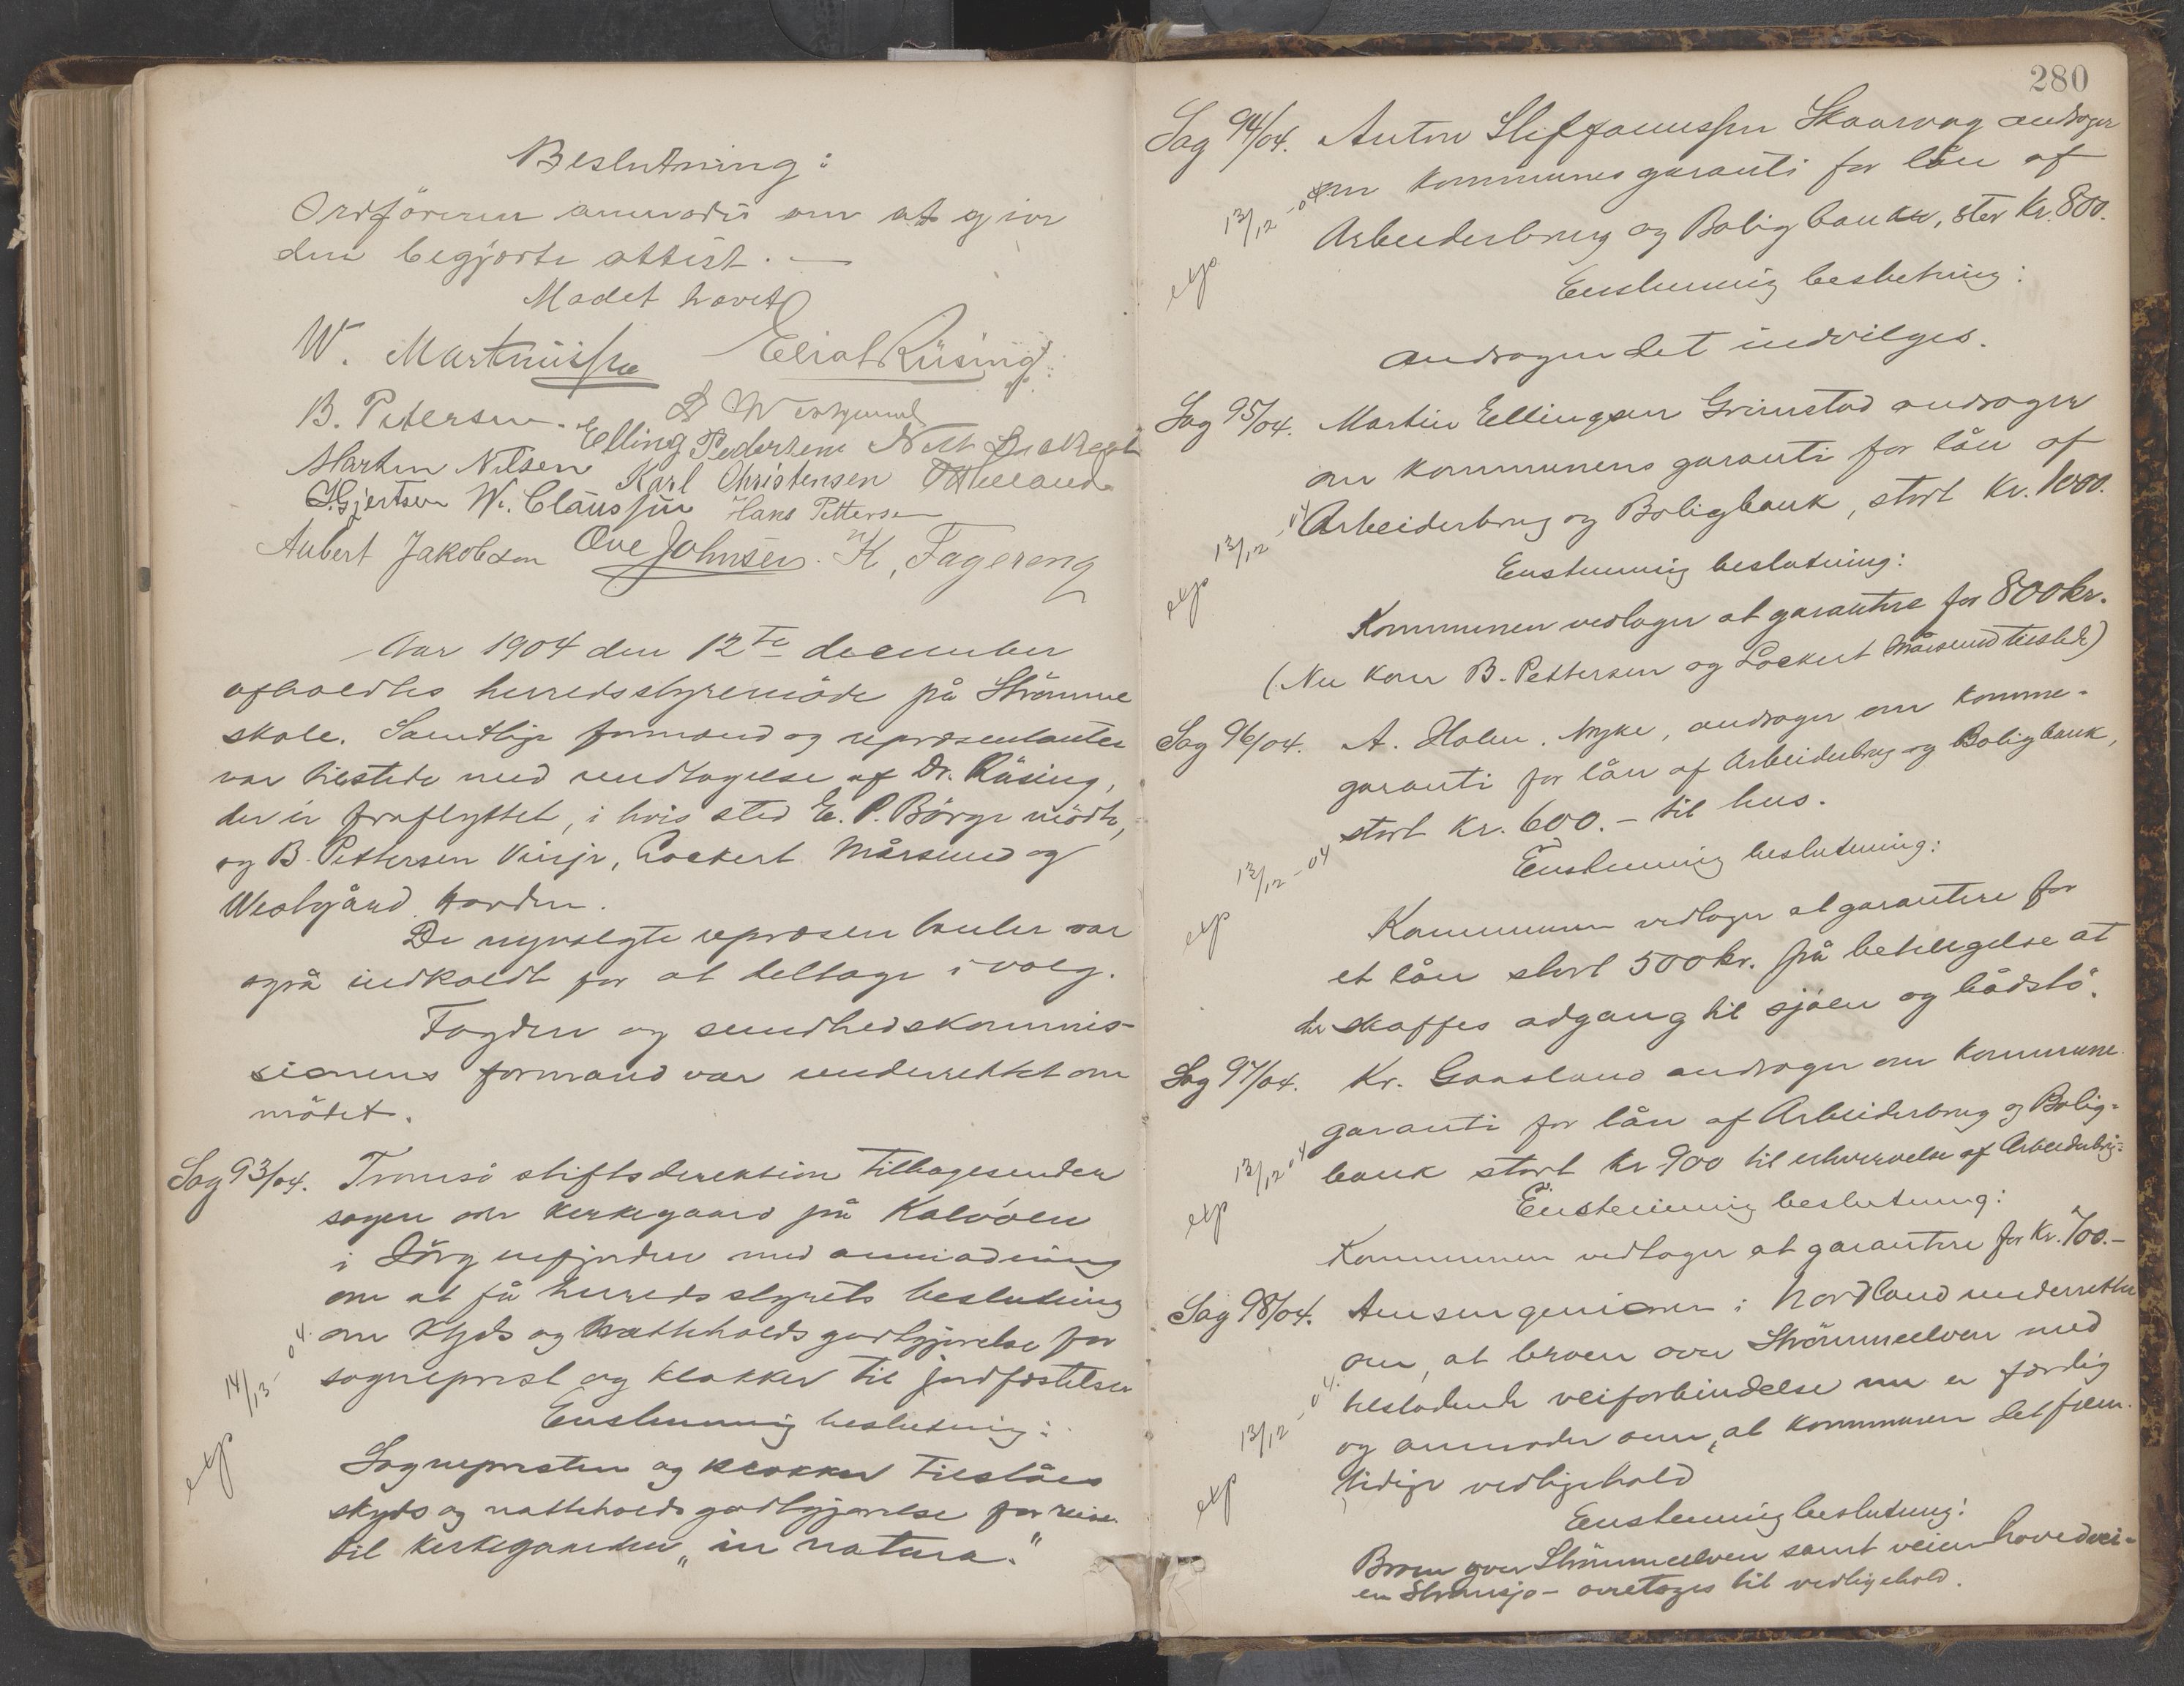 Beslutning:
Ordføreren anmodes om at give
den begjærte attest. —
Mødet hævet
W. Martinussen Eliot Rüsing
B. Pettersen. D Westgaard
Elling Pedersen
Martin Nilsen Karl Christensen
Gjertsen W. Claussen Hans Pettersen
Aubert Jakobsen Ove Johnsen. K, Fagereng
Aar 1904 den 12te december
afholdtes herredsstyremöde på Strömme
skole. Samtlige formænd og repræsentanter
var tilstede med undtagelse af Dr. Rüsing,
der er fraflyttet, i hvis sted E. P. Börge mödte,
og B. Pettersen Vinje, Lockert Mårsund og
Westgård.
De nyvalgte repræsentanter var
også indkaldt for at deltage i valg.
Fogden og sundhedskommis-
sionens formand var underrettet om
mödet.
Sag 93/04. Tromsö stiftsdirektion tilbagesender
sagen om kirkegaard på Kalvöen
i Jörgenfjorden med anmodning
om at få herredsstyrets beslutning
om skyds og natteholdsgodtgjörelse for
sogneprest og klokker til jordfæstelser
Enstemmig beslutning:
14/13-04. exp
Sognepresten og klokker tilståes
skyds og natteholdsgodtgjörelse for reise
til kirkegaarden „in natura."
280
Sag 94/04. Anton Steffensen Skaarvag andrager
om kommunes garanti for lån af
13/12-04 exp
Arbeiderbrug og Boligbanken, stor Kr. 800.
Enstemmig beslutning:
Andragendet indvilges.
Sag 95/04. Martin Ellingsen Grimstad andrager
om kommunens garanti for lån af
13/12-04 exp
Arbeiderbrug og Boligbank, stort Kr. 1000.
Enstemmig beslutning:
Kommunen vedtager at garantere for 800 kr.
(Nu kom B. Pettersen og Lockert Mårsund tilstede)
Sag 96/04. A. Holen, Nyke, andrager om kommune-
garanti for lån af Arbeiderbrug og Boligbank,
stort Kr. 600.- til hus.
Enstemmig beslutning:
13/12-04 exp
Kommunen vedtager at garantere for
et lån stort 500 kr. på betingelse at
der skaffes adgang til sjöen og bådstö.
Sag 97/04. Kr. Gaasland andrager om kommune
garanti for lån af Arbeiderbrug og Bolig-
13/12 04 exp
bank stort kr 900 til erhvervelse af Arbeiderbrug
Enstemmig beslutning:
Kommunen vedtager at garantere for Kr. 700.-
Sag 98/04. Amtsingeniören i Nordland underretter
om, at broen over Strömmeelven med
13/12-04. exp
tilstödende veiforbindelse nu er færdig
og anmoder om, at kommunen det frem-
tidige vedligehold
Enstemmig beslutning:
Broen over Strömmeelven samt veien hovedvei-
en Strömsjö - overtages til vedligehold.